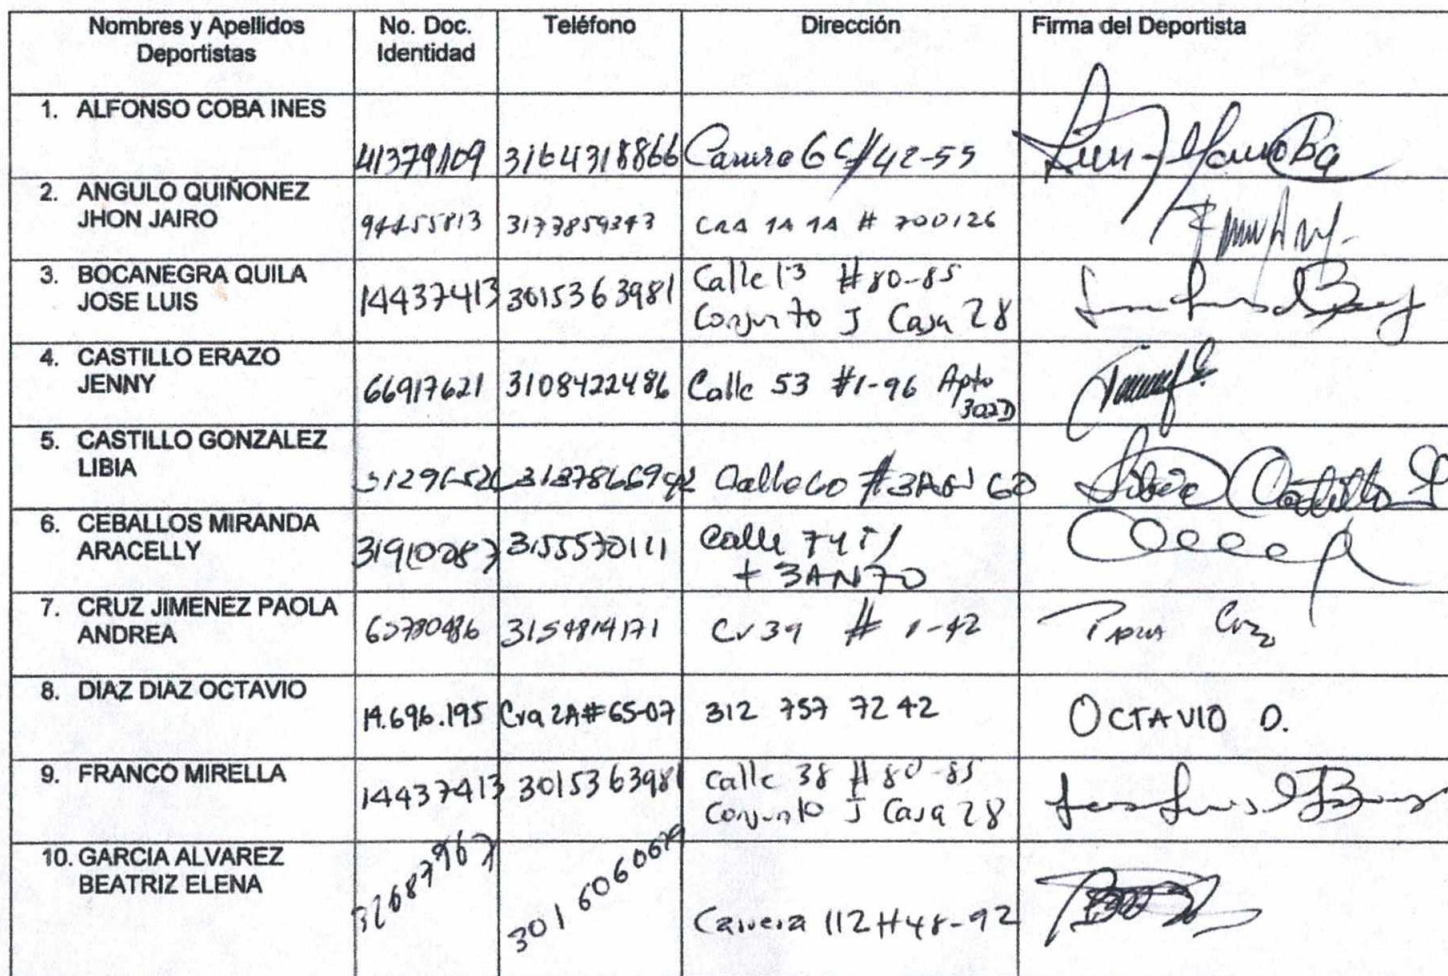 Nombres y Apellidos No. Doc. Teléfono Dirección Firma del Deportista
Deportistas Identidad
1. ALFONSO COBA INES
41379109 3164318866 Carrera 6 C # 42-55
2. ANGULO QUIÑONEZ
JHON JAIRO 94455813 3177859343 CRA 1A 1A # 700126
3. BOCANEGRA QUILA Calle 13 #80-85
JOSE LUIS 14437413 3015363981 Conjunto J Casa 28
4. CASTILLO ERAZO
JENNY 66917621 3108422486 Calle 53 #1-96 Apto
302D
5. CASTILLO GONZALEZ
LIBIA Calle 60 #3AN 60 Libia Castillo G
6. CEBALLOS MIRANDA
ARACELLY 31910287 3155570111 Calle
3AN70
7. CRUZ JIMENEZ PAOLA
ANDREA 65780486 3154814171 Cr 39 # 1-42 Paola Cruz
8. DIAZ DIAZ OCTAVIO
14.696.195 Cra 2A#65-07 312 757 7242 OCTAVIO D.
9. FRANCO MIRELLA Calle 38 #80-85
14437413 3015363981 Conjunto J Casa 28
10. GARCIA ALVAREZ
BEATRIZ ELENA 32687967 301 606067
Carrera 112 #48-92